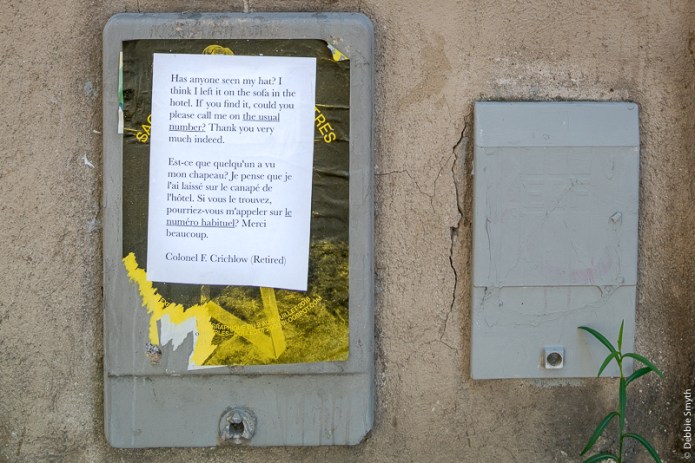 Has anyone seen my hat? I
think I left it on the sofa in the
hotel. If you find it, could you
please call me on the usual
number? Thank you very
much indeed.
Est-ce que quelqu'un a vu
mon chapeau? Je pense que je
l'ai laissé sur le canapé de
l'hôtel. Si vous le trouvez,
pourriez-vous m'appeler sur le
numéro habituel? Merci
beaucoup.
Colonel F. Crichlow (Retired)
© Debbie Smyth